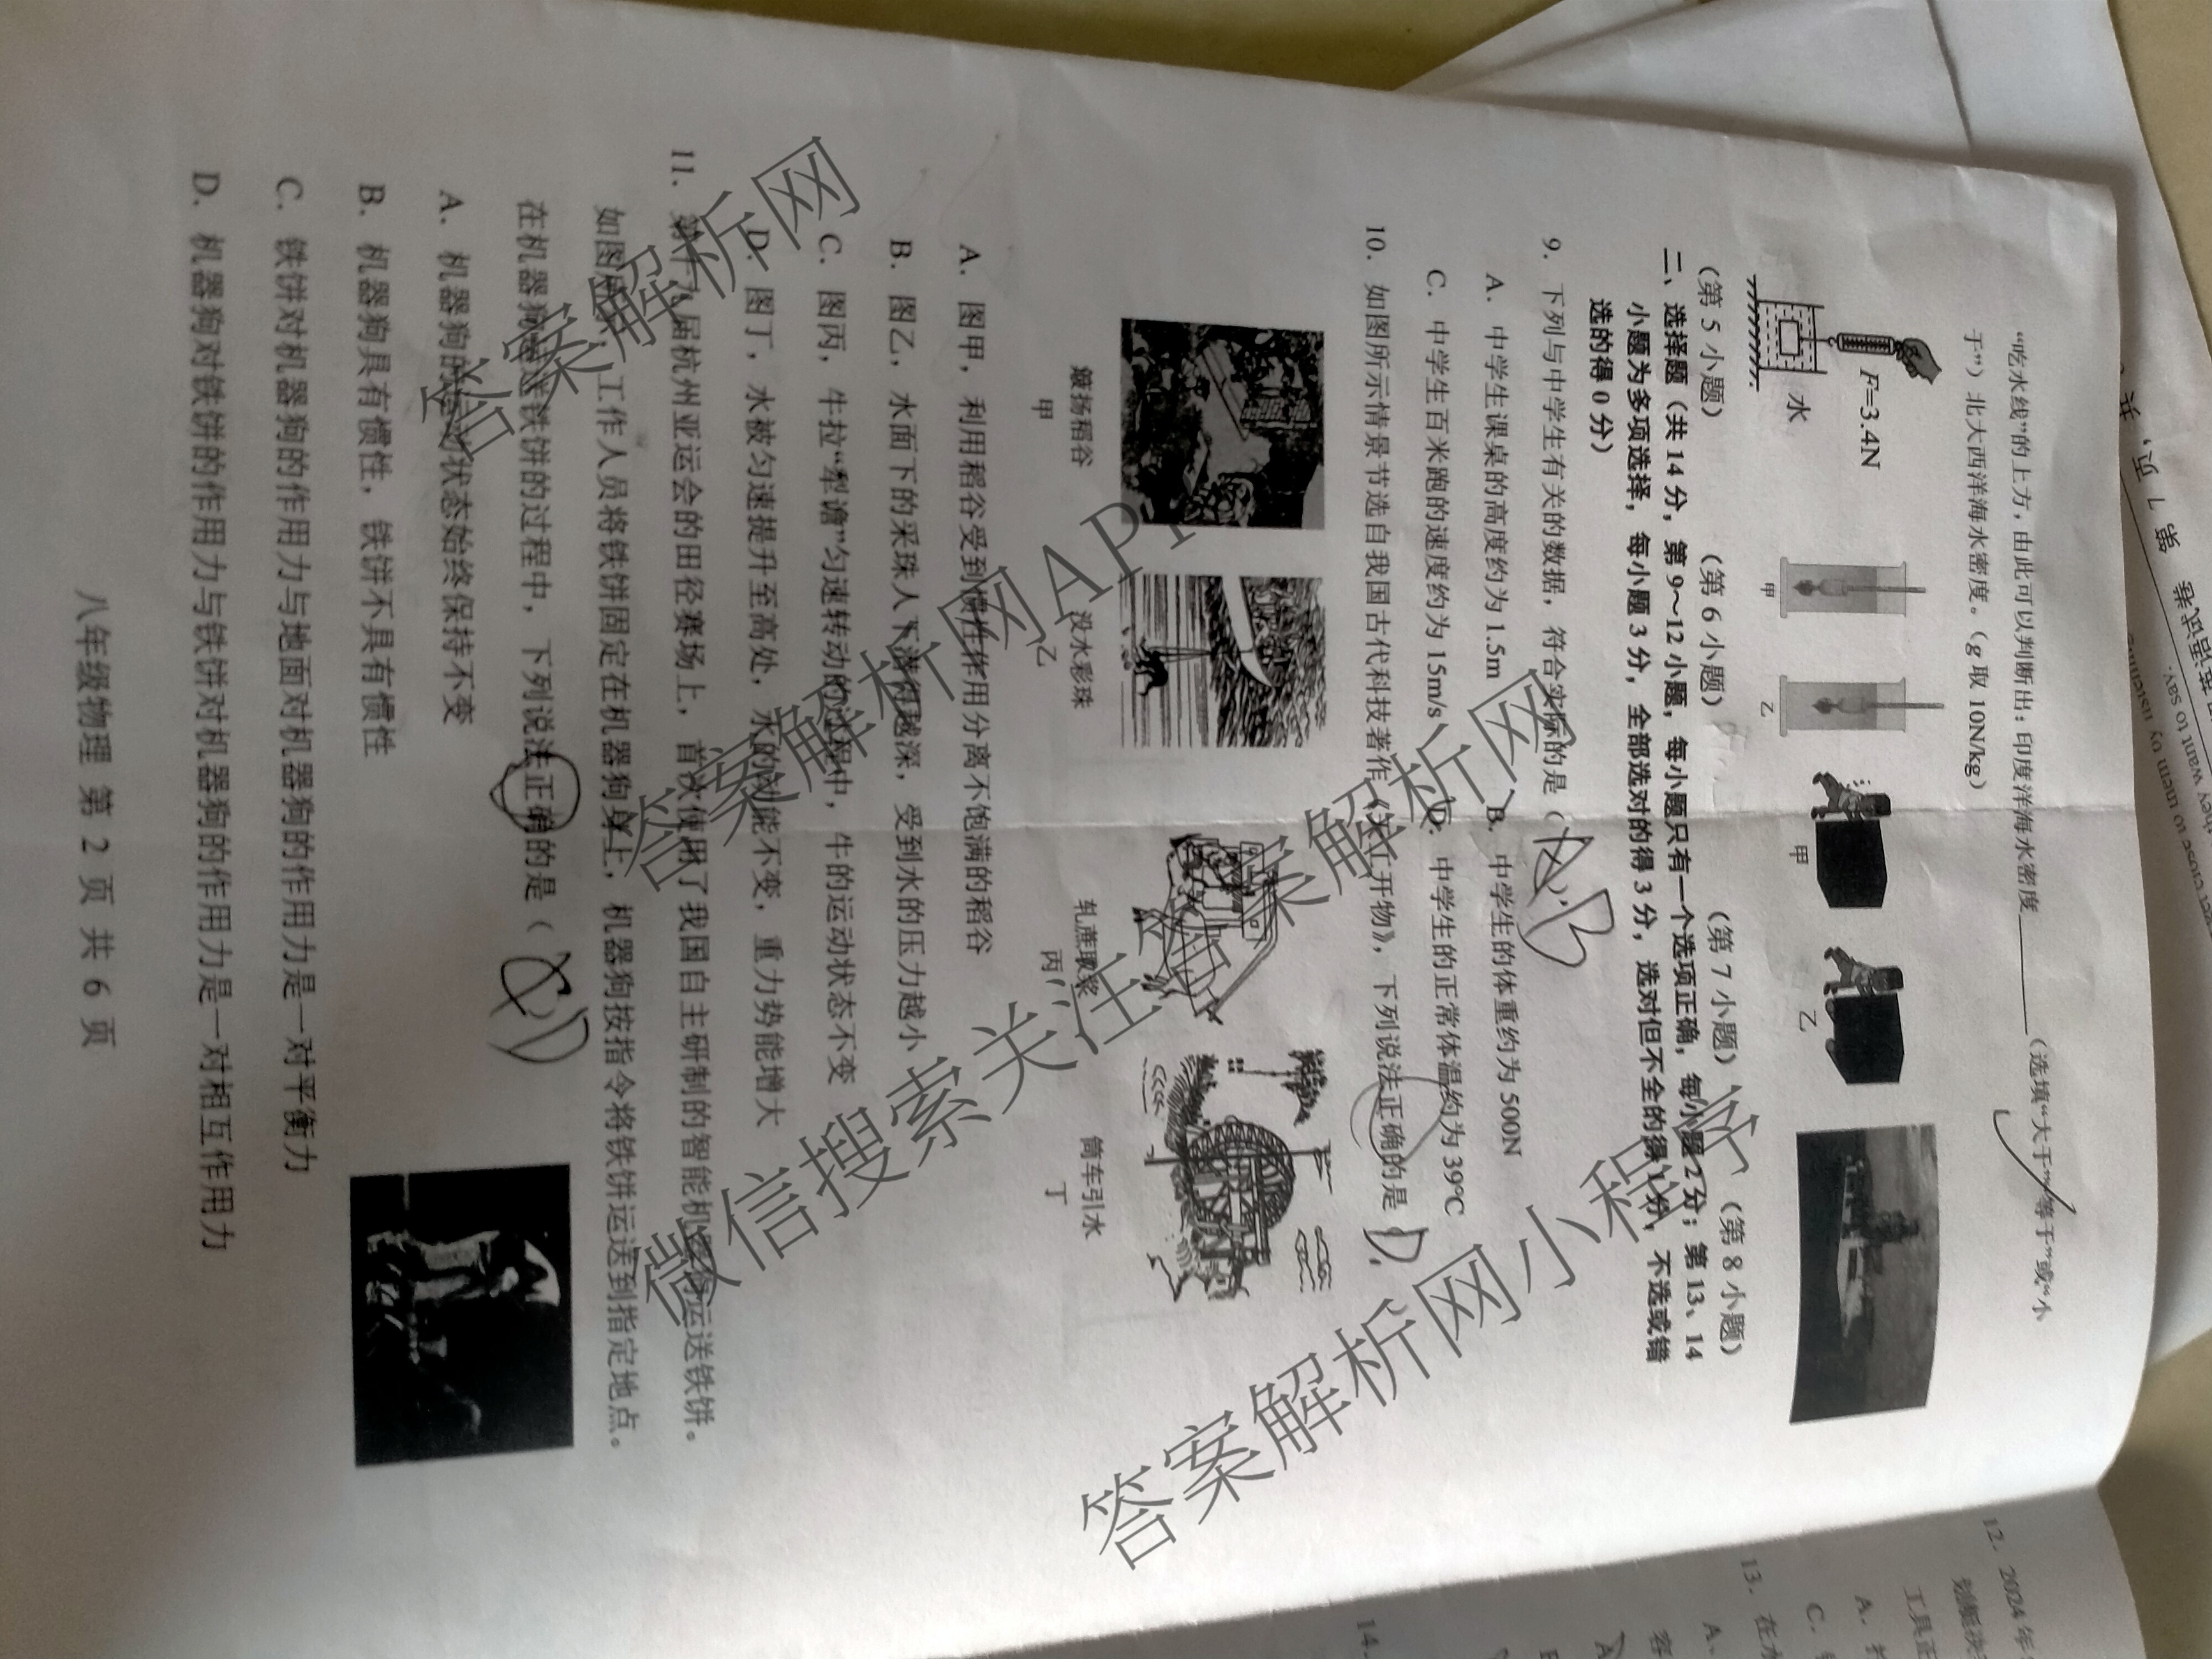 “吃水线”的上方，由此可以判断出：印度洋海水密度________（选填“大于”“等于”或“小
于”）北大西洋海水密度。（g 取 10N/kg）
F=3.4N
水
甲
乙
甲
乙
（第 5 小题）
（第 6 小题）
（第 7 小题）
（第 8 小题）
二、选择题（共 14 分，第 9～12 小题，每小题只有一个选项正确，每小题 2 分；第 13、14
小题为多项选择，每小题 3 分，全部选对的得 3 分，选对但不全的得 1 分，不选或错
选的得 0 分）
9．下列与中学生有关的数据，符合实际的是（ B
A．中学生课桌的高度约为 1.5m
B．中学生的体重约为 500N
C．中学生百米跑的速度约为 15m/s
D．中学生的正常体温约为 39℃
10．如图所示情景节选自我国古代科技著作《天工开物》，下列说法正确的是（ D
簸扬稻谷
没水彩珠
轧蔗取浆
筒车引水
甲
乙
丙
丁
A．图甲，利用稻谷受到惯性作用分离不饱满的稻谷
B．图乙，水面下的采珠人下潜得越深，受到水的压力越小
C．图丙，牛拉“犁谵”匀速转动的过程中，牛的运动状态不变
D．图丁，水被匀速提升至高处，水的动能不变，重力势能增大
11．第十九届杭州亚运会的田径赛场上，首次使用了我国自主研制的智能机器狗运送铁饼。
如图所示，工作人员将铁饼固定在机器狗身上，机器狗按指令将铁饼运送到指定地点。
在机器狗运送铁饼的过程中，下列说法正确的是（ D
A．机器狗的运动状态始终保持不变
B．机器狗具有惯性，铁饼不具有惯性
C．铁饼对机器狗的作用力与地面对机器狗的作用力是一对平衡力
D．机器狗对铁饼的作用力与铁饼对机器狗的作用力是一对相互作用力
八年级物理 第 2 页 共 6 页
12．2024 年
工具正
A．
C．
13．在水
A．
14．
want to say.
答案解析网
答案解析网APP
微信搜索关注答案解析网
答案解析网小程序